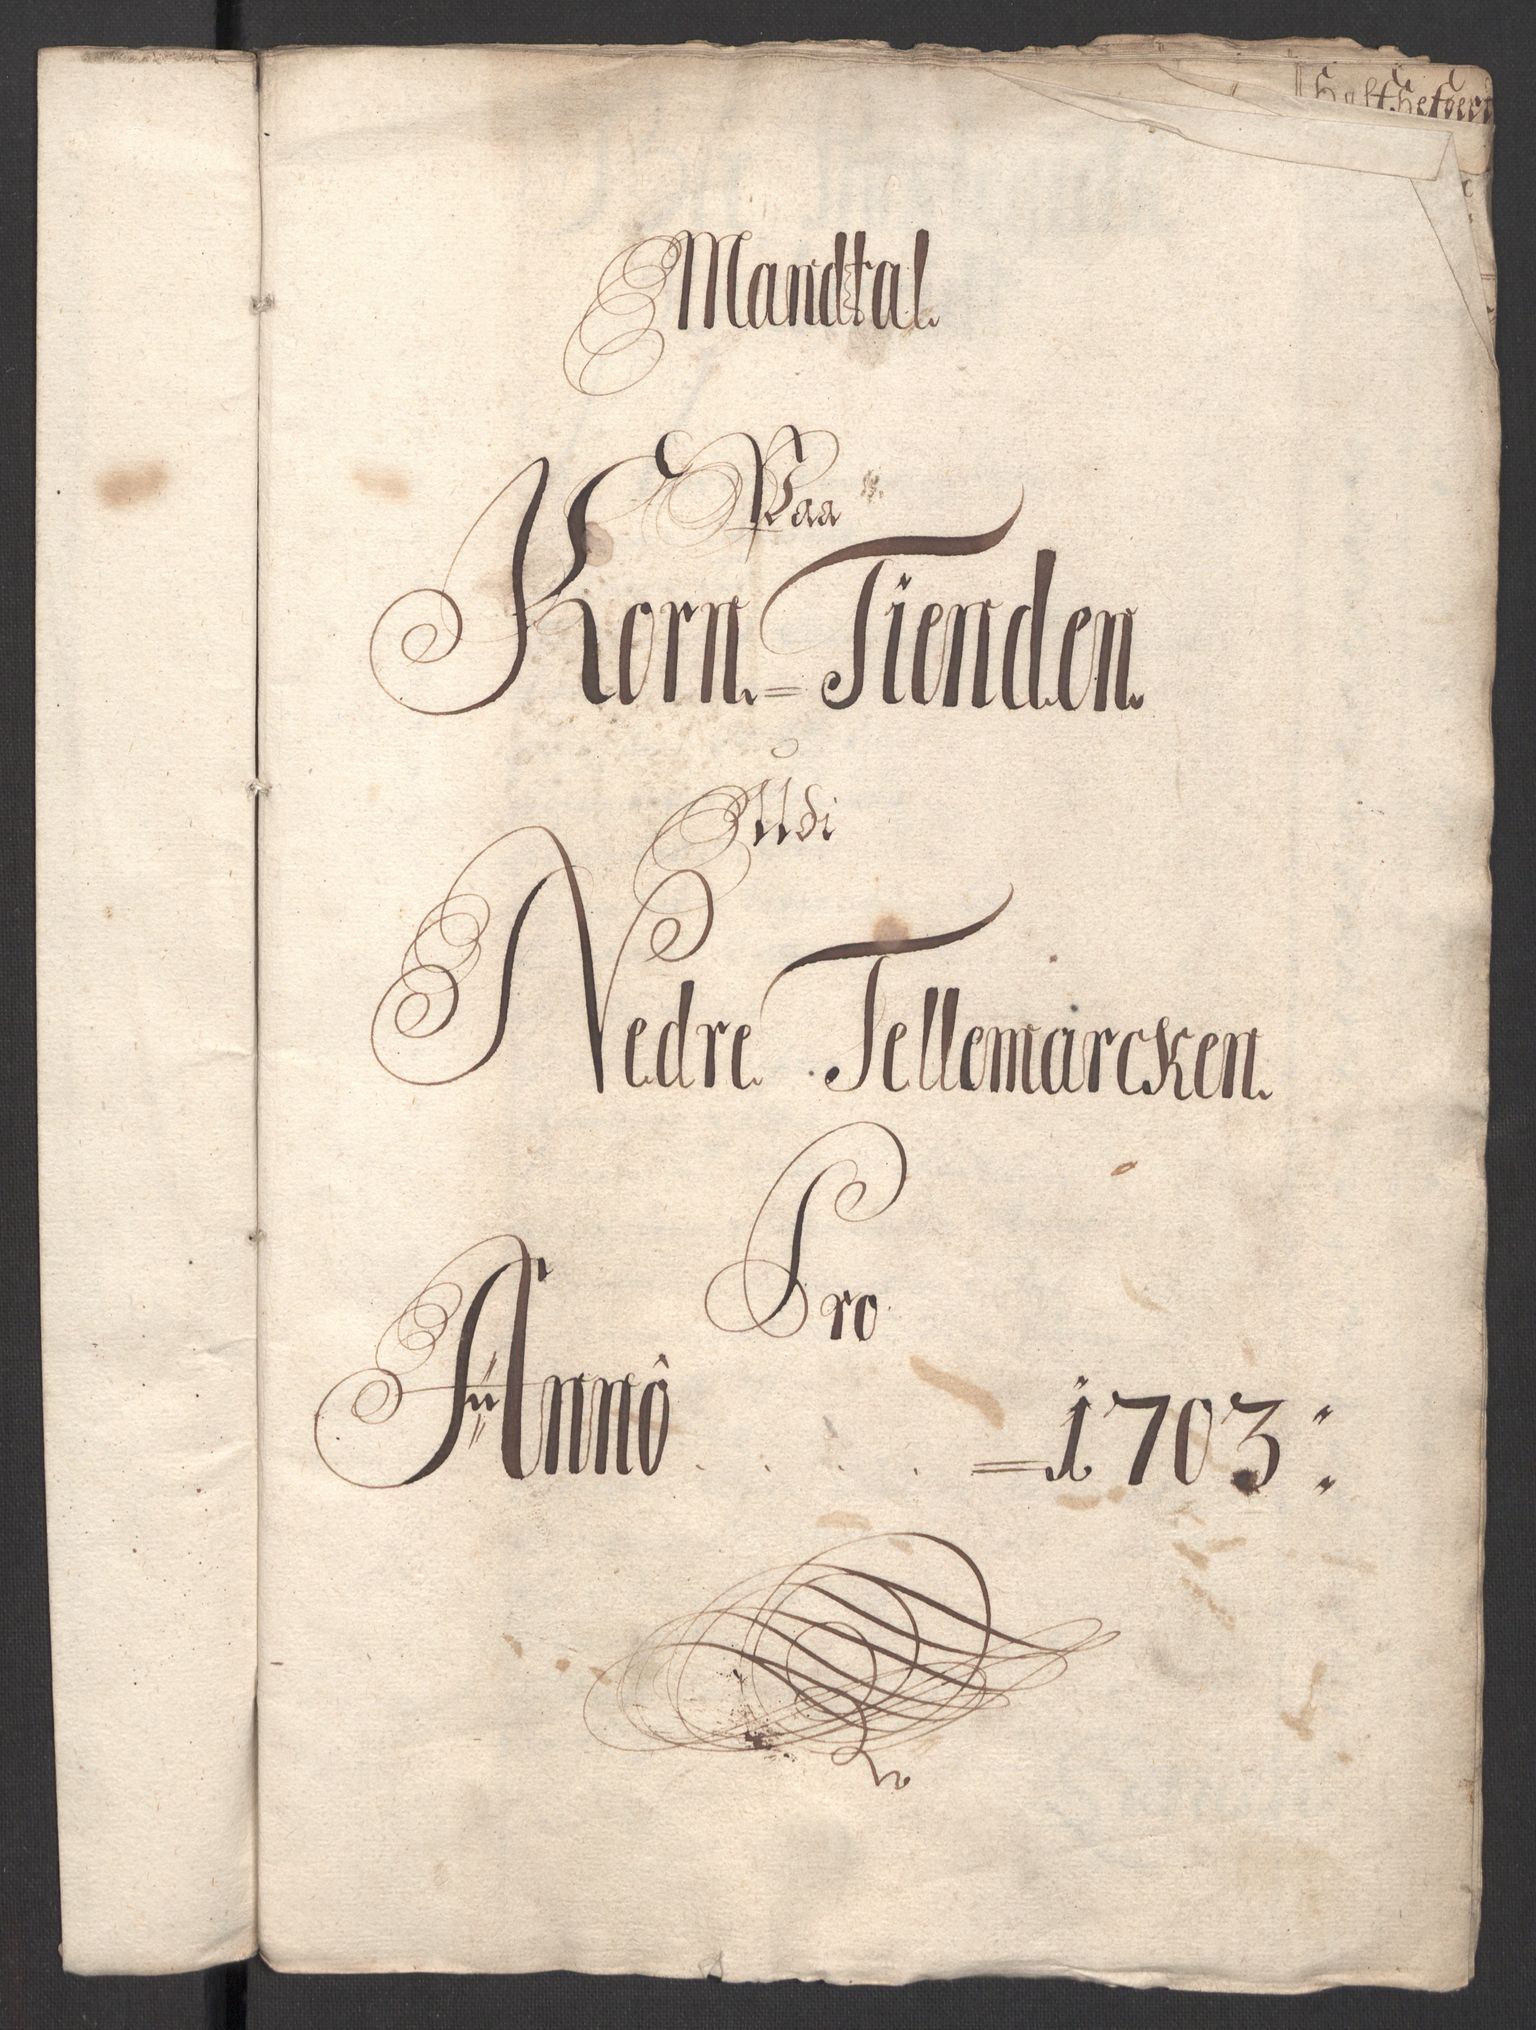 Mandtal.
Paa
Korn = Tienden.
Udi
Nedre Tellemarcken.
Pro
Annô . . . . = 1703: